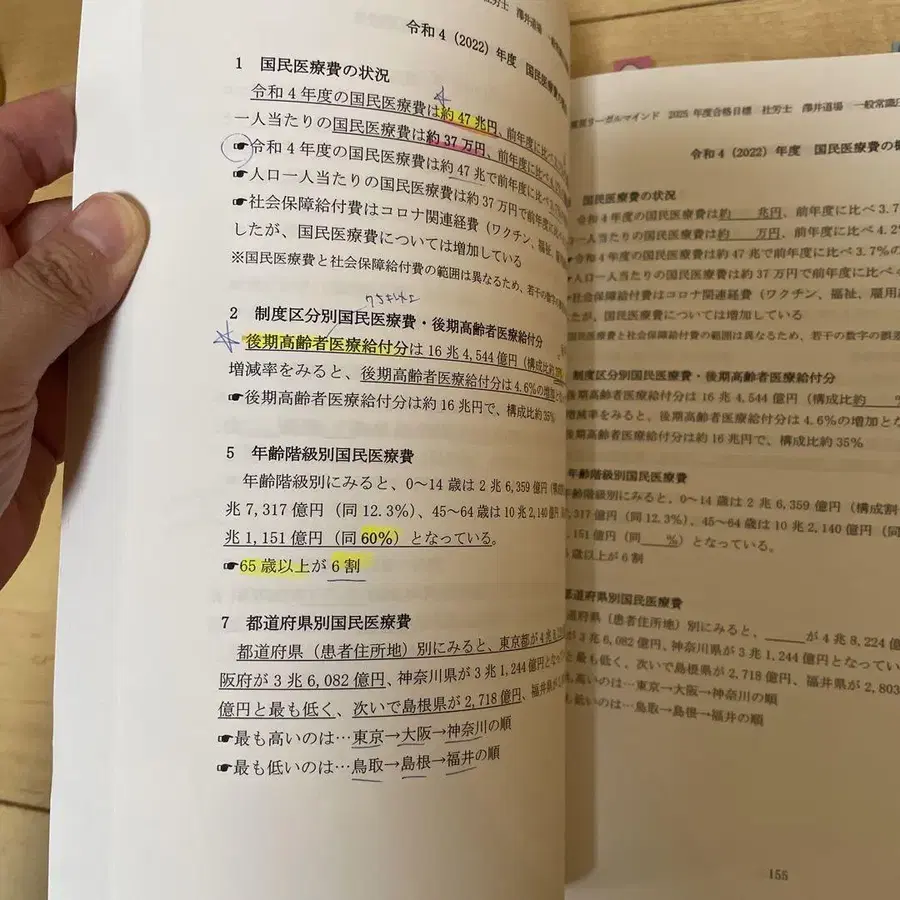 社労士 澤井道場 一般常識
令和4（2022）年度 国民医療費の
1 国民医療費の状況
令和4年度の国民医療費は約47兆円、前年度に比べ
一人当たりの国民医療費は約37万円、前年度に比べ
☛令和4年度の国民医療費は約47兆で前年度に比べ
☛人口一人当たりの国民医療費は約37万円で前年度に
☛社会保障給付費はコロナ関連経費（ワクチン、福祉、
したが、国民医療費については増加している
※国民医療費と社会保障給付費の範囲は異なるため、若干の数字の
2 制度区分別国民医療費・後期高齢者医療給付分
後期高齢者医療給付分は16兆4,544億円（構成比約
増減率をみると、後期高齢者医療給付分は4.6%の増加と
☛後期高齢者医療給付分は約16兆円で、構成比約35%
5 年齢階級別国民医療費
年齢階級別にみると、0～14歳は2兆6,359億円（構成
兆7,317億円（同12.3%）、45～64歳は10兆2,140億円（同
兆1,151億円（同60%）となっている。
☛65歳以上が6割
7 都道府県別国民医療費
都道府県（患者住所地）別にみると、東京都が4兆8,
阪府が3兆6,082億円、神奈川県が3兆1,244億円となって
億円と最も低く、次いで島根県が2,718億円、福井県が
☛最も高いのは…東京→大阪→神奈川の順
☛最も低いのは…鳥取→島根→福井の順
東京リーガルマインド 2025年度合格目標 社労士 澤井道場 一般常識
令和4（2022）年度 国民医療費の概
国民医療費の状況
令和4年度の国民医療費は約 兆円、前年度に比べ3.7
一人当たりの国民医療費は約 万円、前年度に比べ4.2
令和4年度の国民医療費は約47兆で前年度に比べ3.7%の
人口一人当たりの国民医療費は約37万円で前年度に比べ
社会保障給付費はコロナ関連経費（ワクチン、福祉、雇用
たが、国民医療費については増加している
国民医療費と社会保障給付費の範囲は異なるため、若干の数字の誤差
制度区分別国民医療費・後期高齢者医療給付分
後期高齢者医療給付分は16兆4,544億円（構成比約 %
増減率をみると、後期高齢者医療給付分は4.6%の増加とな
後期高齢者医療給付分は約16兆円で、構成比約35%
年齢階級別国民医療費
年齢階級別にみると、0～14歳は2兆6,359億円（構成割
7,317億円（同12.3%）、45～64歳は10兆2,140億円（同
,151億円（同 %）となっている。
歳以上が6割
都道府県別国民医療費
道府県（患者住所地）別にみると、 が4兆8,224億
が3兆6,082億円、神奈川県が3兆1,244億円となってい
と最も低く、次いで島根県が2,718億円、福井県が2,803
高いのは…東京→大阪→神奈川の順
低いのは…鳥取→島根→福井の順
155